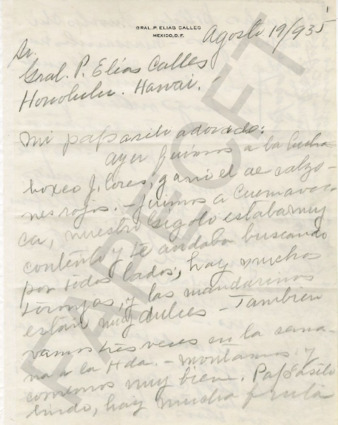 1
GRAL. P. ELIAS CALLES
MEXICO, D.F.
Agosto 19/935
Sr.
Gral. P. Elías Calles
Honolulu. Hawai.
Mi papasito adorado:
Ayer fuimos a la lucha
boxeo J. Cores, ganó el de calzo-
nes rojos. - Fuimos a Cuernava-
ca, nuestro estaba muy
contento y te andaba buscando
por todos lados, hay muchas
toronjas, y las mandarinas
están muy dulces - También
vamos tres veces en la sema-
na a la Hda. - montamos, y
comemos muy bien. Papasito
lindo, hay mucha fruta
PARECFT